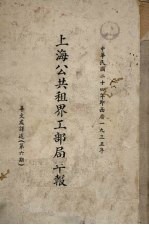 中華民國二十四年即西曆一九三五年
上海公共租界工部局年報
華文處譯述（第六期）